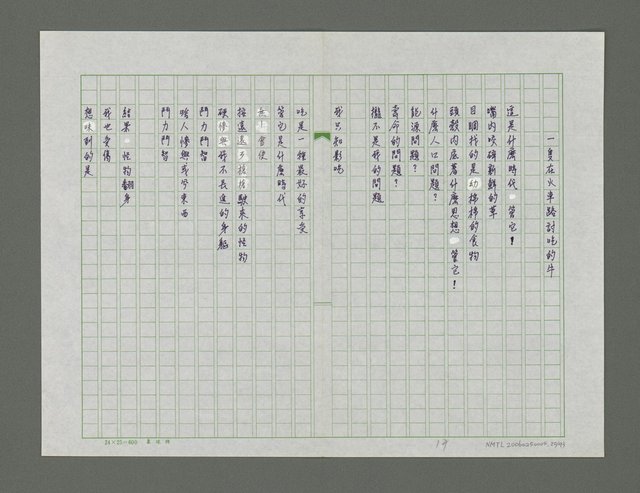 一隻在火車路討吃的牛
這是什麼時代 管它！
嘴內咬磅新鮮的草
目睭找的是幼棉棉的食物
頭殼內底著什麼思想 管它！
什麼人口問題？
能源問題？
壽命的問題？
攏不是我的問題
我只知影吃
吃是一種最好的享受
管它是什麼時代
會使
從遠遠 駛來的怪物
硬 與我不長進的身軀
鬥力鬥智
啥人慘與我分東西
鬥力鬥智
結果 怪物翻身
我也受傷
想味到的是
24×25=600
19
NMTL 20060250006